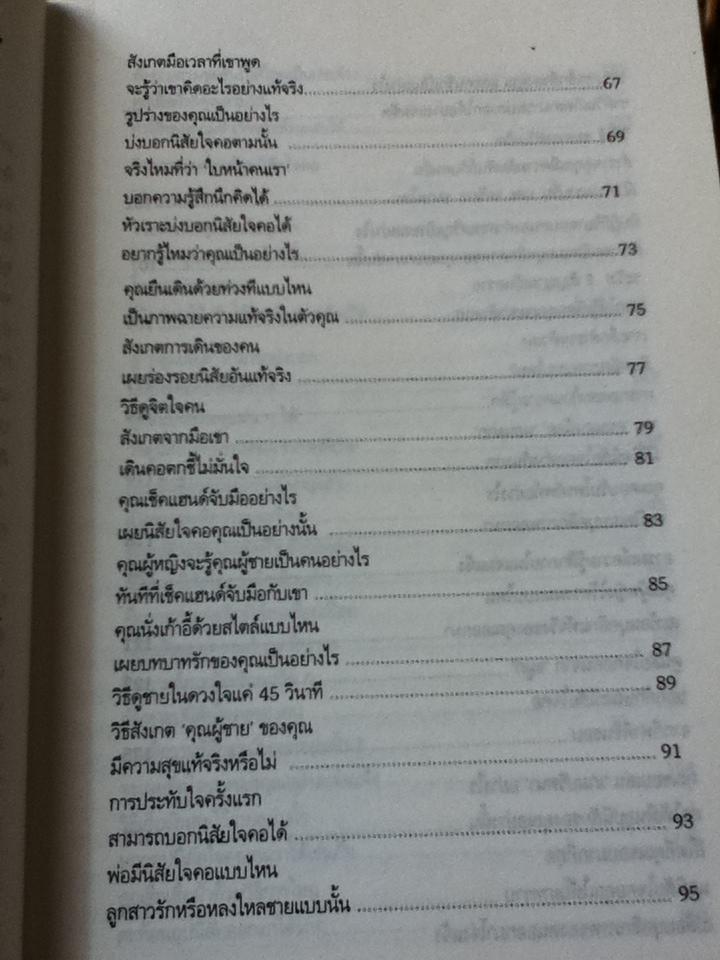 สังเกตมือเวลาที่เขาพูด
จะรู้ว่าเขาคิดอะไรอย่างแท้จริง........................................67
รูปร่างของคุณเป็นอย่างไร
บ่งบอกนิสัยใจคอตามนั้น ........................................69
จริงไหมที่ว่า 'ใบหน้าคนเรา'
บอกความรู้สึกนึกคิดได้ ........................................71
หัวเราะบ่งบอกนิสัยใจคอได้
อยากรู้ไหมว่าคุณเป็นอย่างไร........................................73
คุณยืนเดินด้วยท่วงทีแบบไหน
เป็นภาพฉายความแท้จริงในตัวคุณ ........................................75
สังเกตการเดินของคน
เผยร่องรอยนิสัยอันแท้จริง ........................................77
วิธีดูจิตใจคน
สังเกตจากมือเขา ........................................79
เดินคอตกชี้ไม่มั่นใจ ........................................81
คุณเช็คแฮนด์จับมืออย่างไร
เผยนิสัยใจคอคุณเป็นอย่างนั้น ........................................83
คุณผู้หญิงจะรู้คุณผู้ชายเป็นคนอย่างไร
ทันทีที่เช็คแฮนด์จับมือกับเขา ........................................85
คุณนั่งเก้าอี้ด้วยสไตล์แบบไหน
เผยบทบาทรักของคุณเป็นอย่างไร ........................................87
วิธีดูชายในดวงใจแค่ 45 วินาที ........................................89
วิธีสังเกต 'คุณผู้ชาย' ของคุณ
มีความสุขแท้จริงหรือไม่ ........................................91
การประทับใจครั้งแรก
สามารถบอกนิสัยใจคอได้ ........................................93
พ่อมีนิสัยใจคอแบบไหน
ลูกสาวรักหรือหลงใหลชายแบบนั้น ........................................95